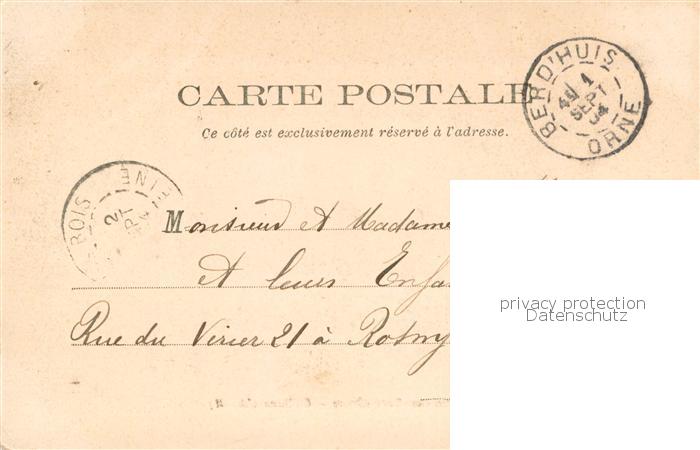 CARTE POSTALE
Ce côté est exclusivement réservé à l'adresse.
BERD'HUIS
1
SEPT
04
ORNE
BOIS
2
Monsieur et Madame
et leurs Enfa
Rue du 21 à Rosny
privacy protection
Datenschutz